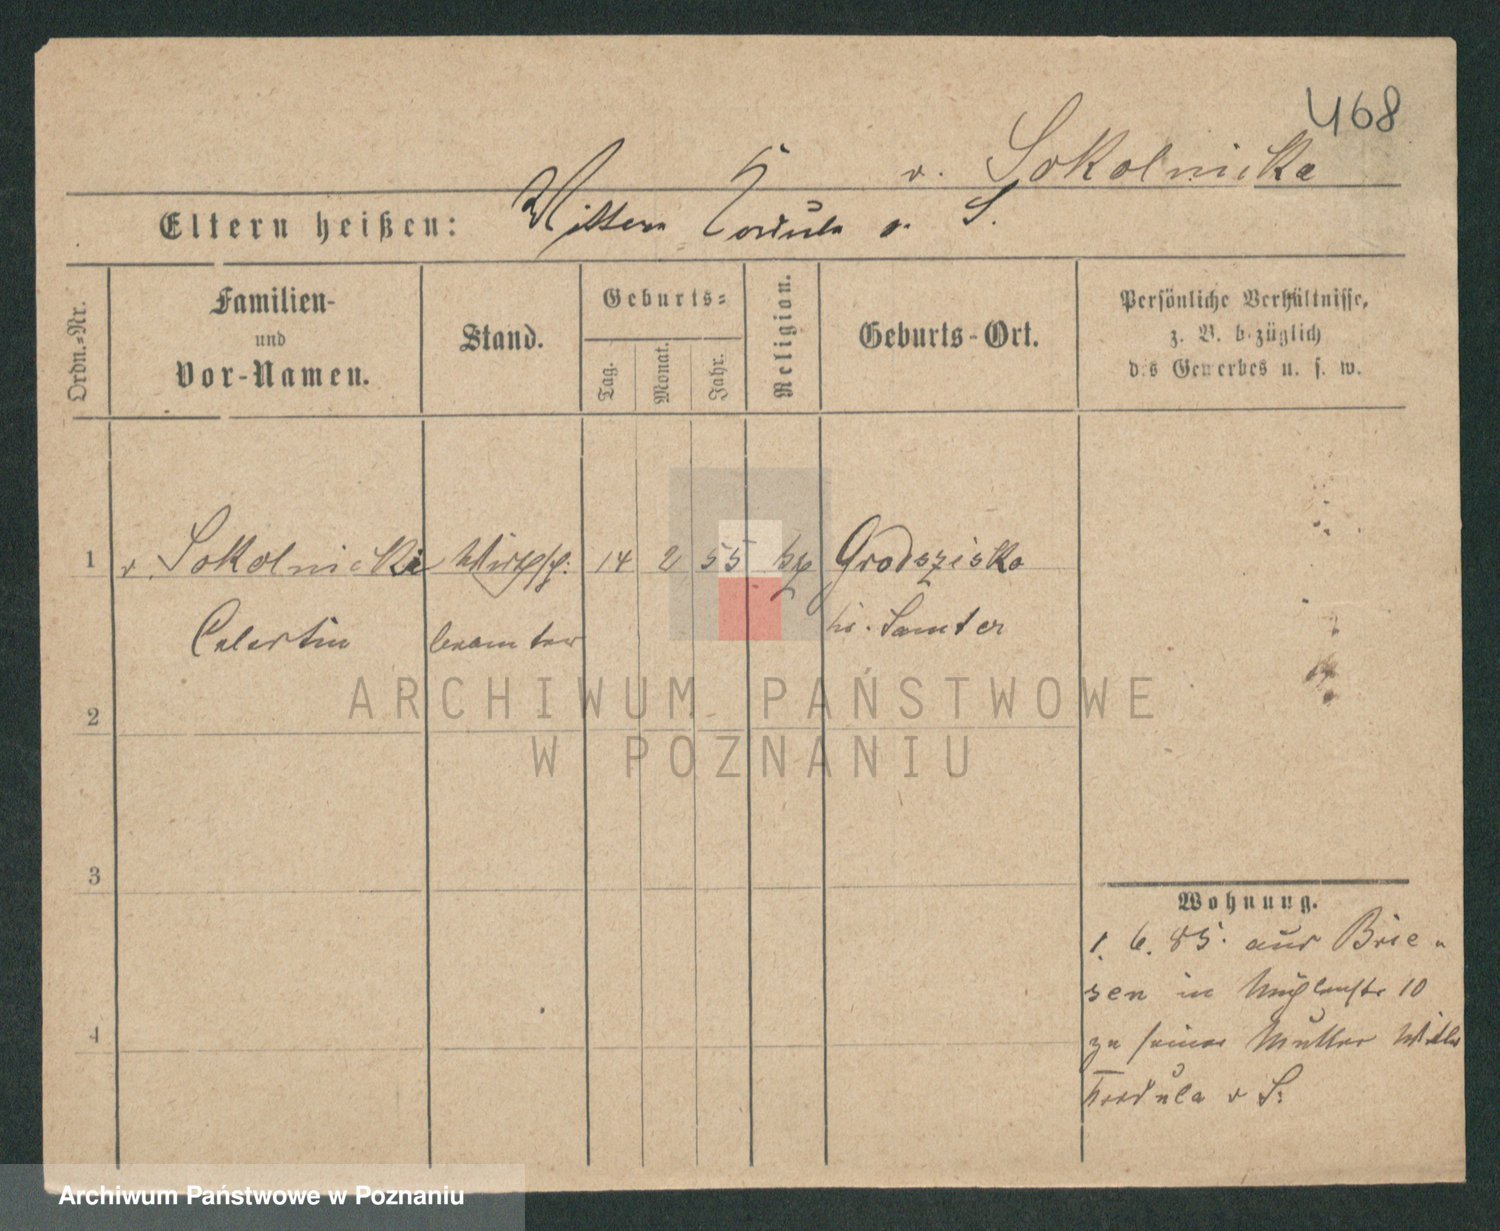 468
v. Sokolnicka
Eltern heißen: Kordula v. S.
Ordn.-Nr.
Familien-
und
Vor-Namen.
Stand.
Geburts-
Tag.
Monat.
Jahr.
Religion.
Geburts-Ort.
Persönliche Verhältnisse,
z. B. bezüglich
des Gewerbes u. s. w.
1 v. Sokolnicki Wirthsch: 14 2 55 Grodszisko
Celestin beamter Kr. Samter
ARCHIWUM PAŃSTWOWE
W POZNANIU
2
3
Wohnung.
1. 6. 85. aus Brie-
sen in 10
4
zu seiner Mutter
Kordula v S.
Archiwum Państwowe w Poznaniu